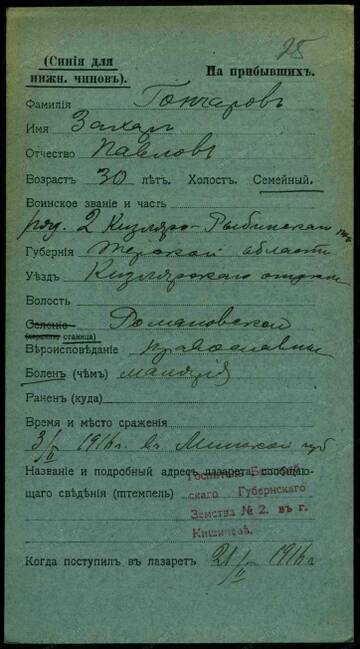 25
(Синія для
нижн. чиновъ).
На прибывшихъ.
Фамилія Гончаровъ
Имя Захаръ
Отчество Павловъ
Возрастъ 30 лѣтъ. Холост. Семейный.
Воинское званіе и часть
ряд. 2 Кизляро-
Губернія Терской области
Уѣздъ Кизлярскаго отдѣла
Волость
Селеніе Романовской
станица)
Вѣроисповѣданіе православный
Боленъ (чѣмъ) малярія
Раненъ (куда)
Время и мѣсто сраженія
3/II 1916 г. въ Минской губ
Названіе и подробный адресъ лазарета, сообщаю-
щаго свѣдѣнія (штемпель)
Госпиталь
скаго Губернскаго
Земства № 2. въ г.
Кишиневѣ.
Когда поступилъ въ лазаретъ 21/II 1916 г